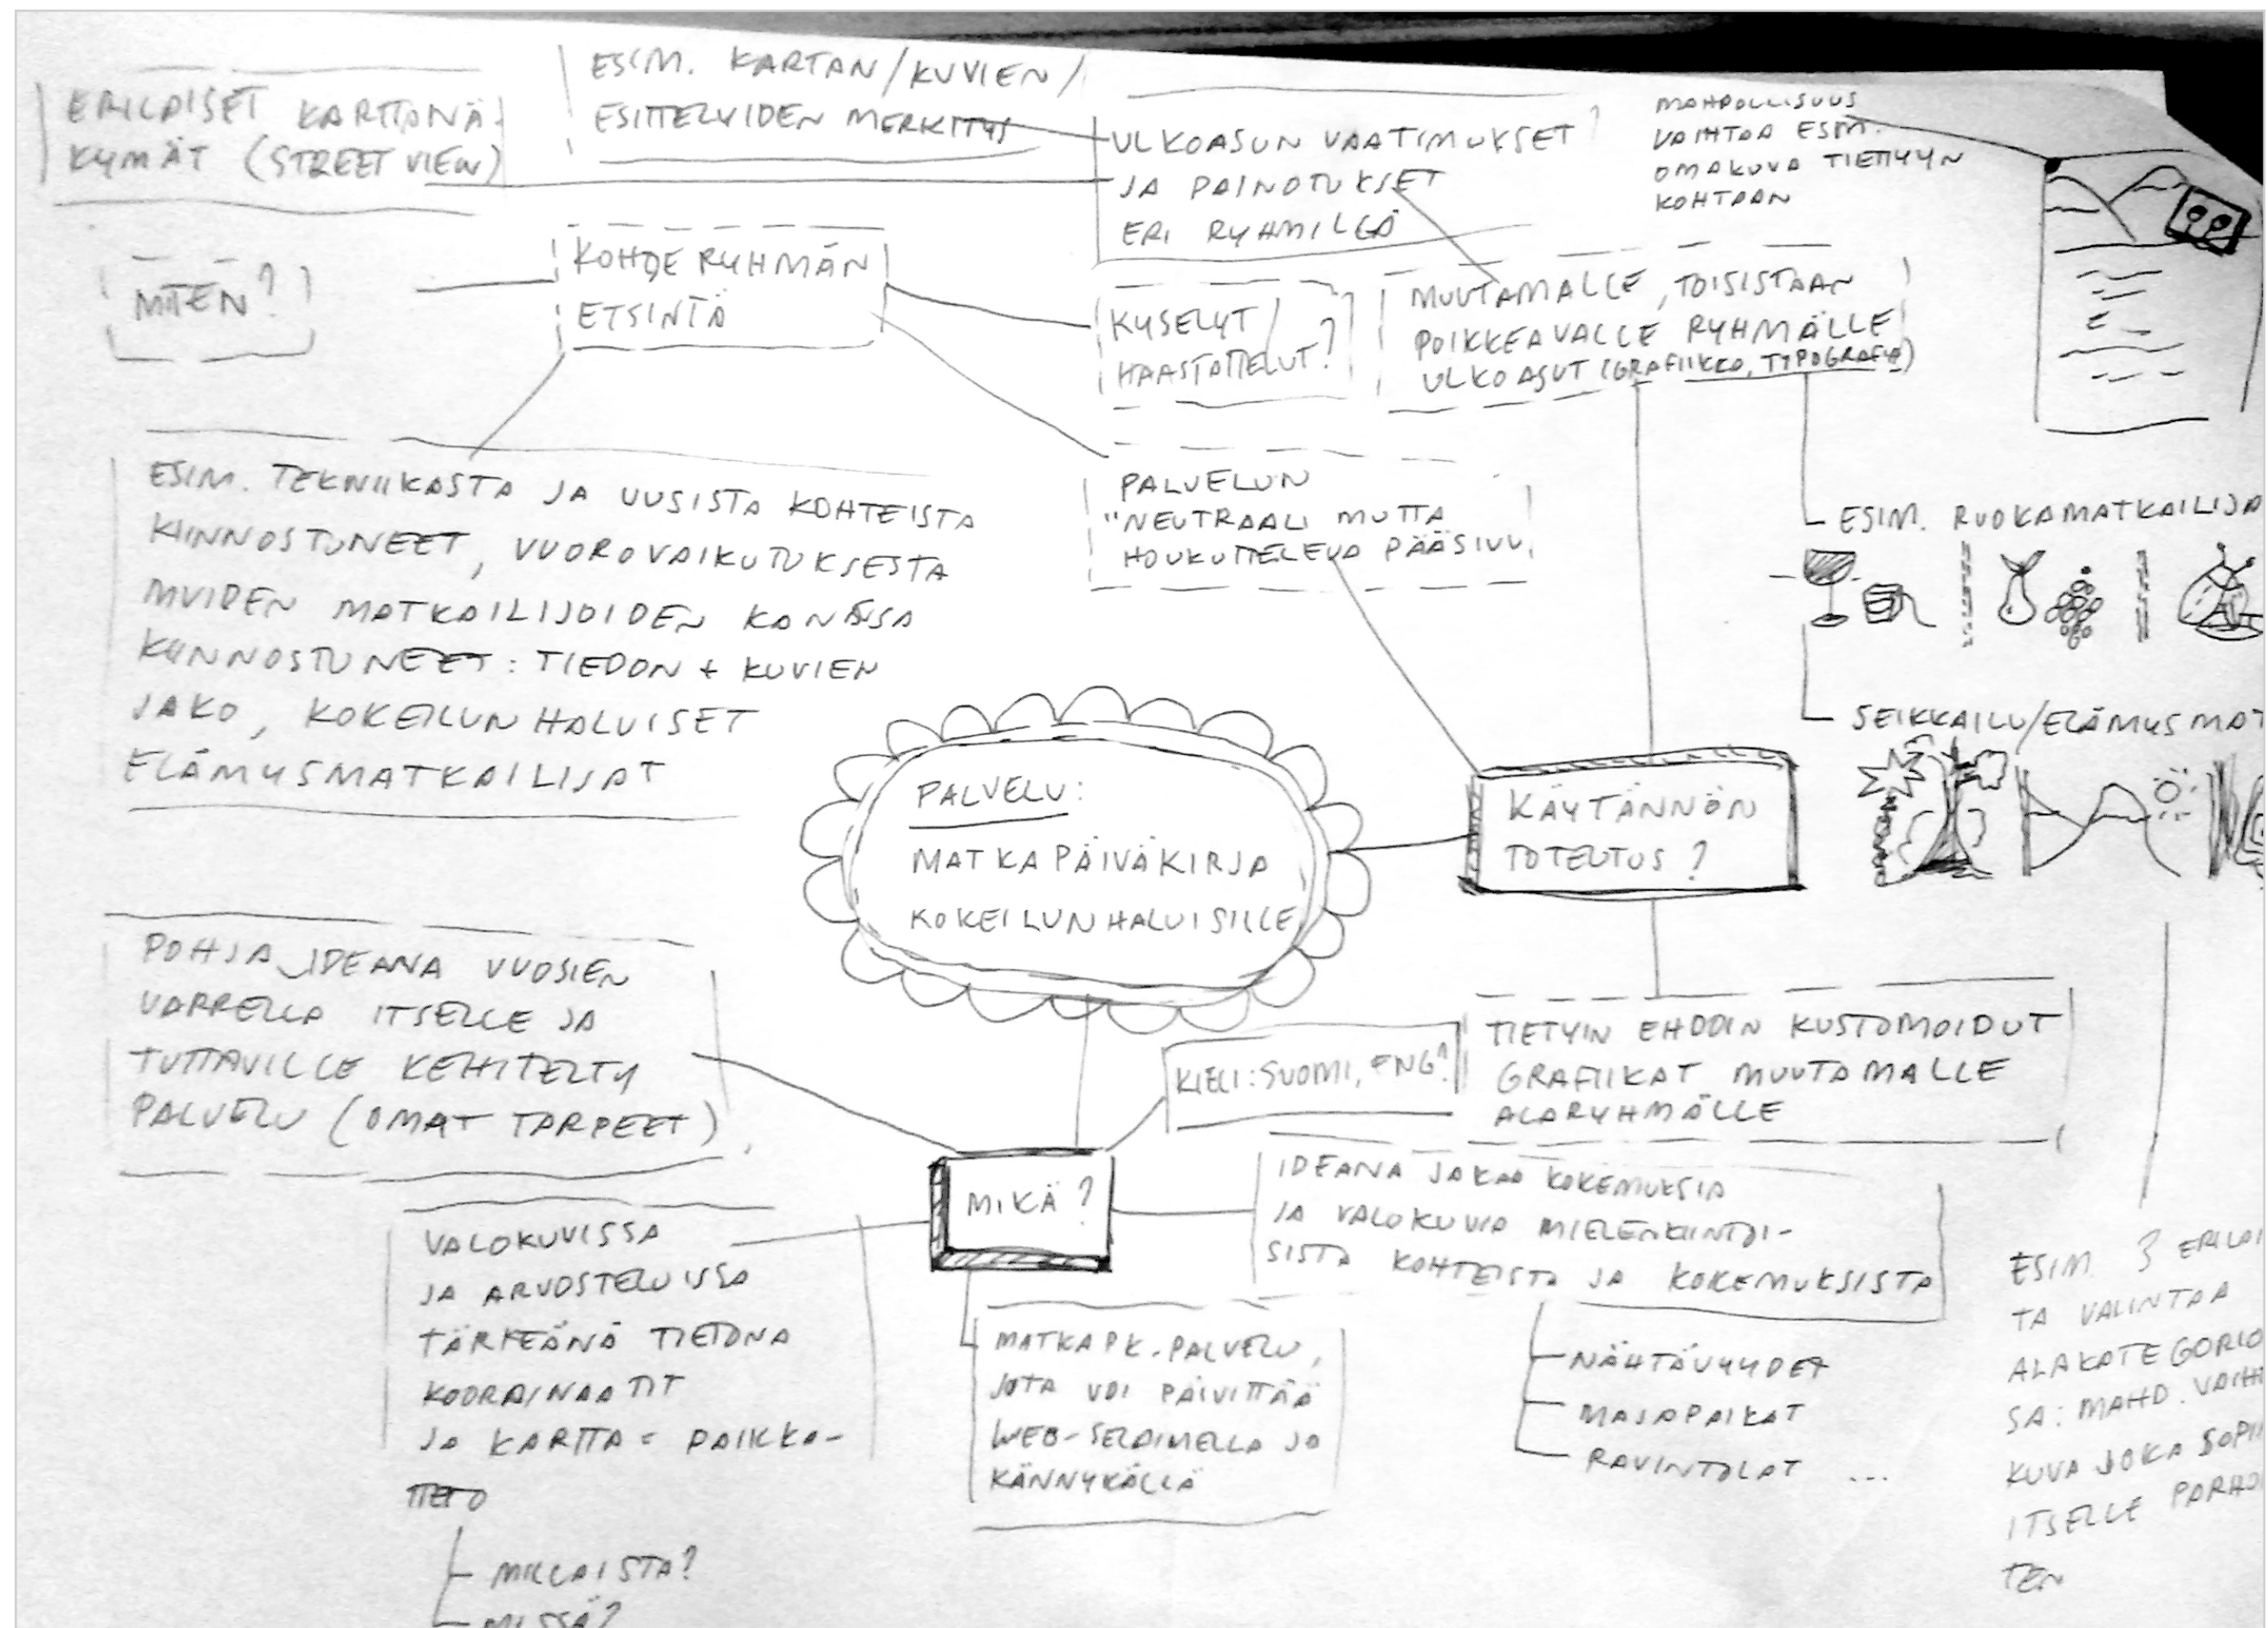 ERILAISET KARTTANÄ-
KYMÄT (STREET VIEW)
ESIM. KARTAN/KUVIEN/
ESITTELYIDEN MERKITYS
ULKOASUN VAATIMUKSET?
JA PAINOTUKSET
ERI RYHMILLÄ
MAHDOLLISUUS
VAIHTAA ESIM.
OMAKUVA TIETTYYN
KOHTAAN
MITEN?
KOHDERYHMÄN
ETSINTÄ
KYSELYT/
HAASTATTELUT?
MUUTAMALLE, TOISISTAAN
POIKKEAVALLE RYHMÄLLE
ULKOASUT (GRAFIIKKA, TYPOGRAFIA)
ESIM. TEKNIIKASTA JA UUSISTA KOHTEISTA
KIINNOSTUNEET, VUOROVAIKUTUKSESTA
MUIDEN MATKAILIJOIDEN KANSSA
KIINNOSTUNEET: TIEDON + KUVIEN
JAKO, KOKEILUNHALUISET
ELÄMYSMATKAILIJAT
PALVELUN
"NEUTRAALI MUTTA
HOUKUTTELEVA PÄÄSIVU
ESIM. RUOKAMATKAILIJA
SEIKKAILU/ELÄMYSMAT
PALVELU:
MATKAPÄIVÄKIRJA
KOKEILUNHALUISILLE
KÄYTÄNNÖN
TOTEUTUS?
POHJAIDEANA VUOSIEN
VARRELLA ITSELLE JA
TUTTAVILLE KEHITELTY
PALVELU (OMAT TARPEET)
KIELI: SUOMI, ENG?
TIETYIN EHDOIN KUSTOMOIDUT
GRAFIIKAT MUUTAMALLE
ALARYHMÄLLE
MIKÄ?
IDEANA JAKAA KOKEMUKSIA
JA VALOKUVIA MIELENKIINTOI-
SISTA KOHTEISTA JA KOKEMUKSISTA
NÄHTÄVYYDET
MAJAPAIKAT
RAVINTOLAT ...
VALOKUVISSA
JA ARVOSTELUISSA
TÄRKEÄNÄ TIETONA
KOORDINAATIT
JA KARTTA = PAIKKA-
TIETO
MILLAISTA?
MISSÄ?
MATKAPK.PALVELU,
JOTA VOI PÄIVITTÄÄ
WEB-SELAIMELLA JA
KÄNNYKÄLLÄ
ESIM. 3 ERILAI
TA VALINTAA
ALAKATEGORIO
SA: MAHD. VAIH
KUVA JOKA SOPII
ITSELLE PARHAI
TEN